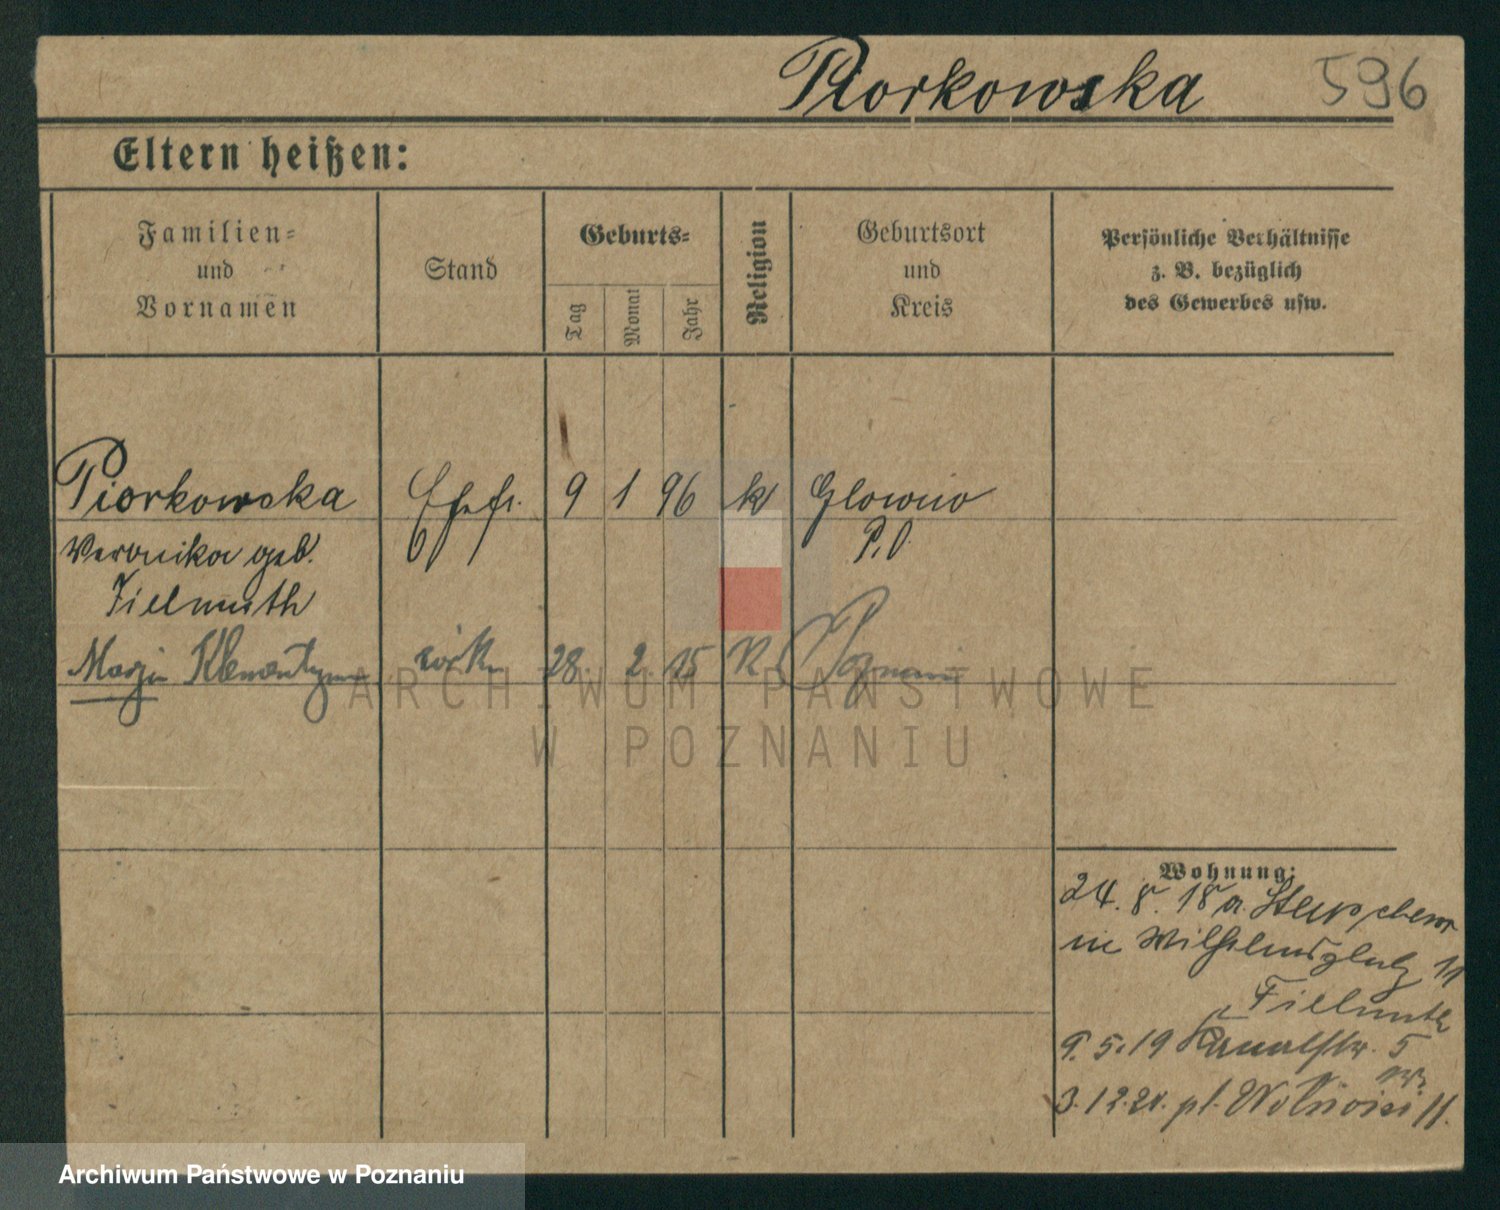 Piorkowska 596
Eltern heißen:
Familien-
und
Vornamen
Stand
Geburts-
Tag
Monat
Jahr
Religion
Geburtsort
und
Kreis
Persönliche Verhältnisse
z. B. bezüglich
des Gewerbes usw.
Piorkowska Ehefr. 9 1 96 k Glowno
Veronika geb. P. O.
Fielmuth
Marja Klementyna córka 28. 2. 15 K Poznań
ARCHIWUM PAŃSTWOWE
W POZNANIU
Wohnung:
24. 8. 18 a.
in Wilhelmsplatz 11
Fielmuth
9. 5. 19 Kanalstr. 5
3. 12. 20. pl. Wolności 11.
Archiwum Państwowe w Poznaniu